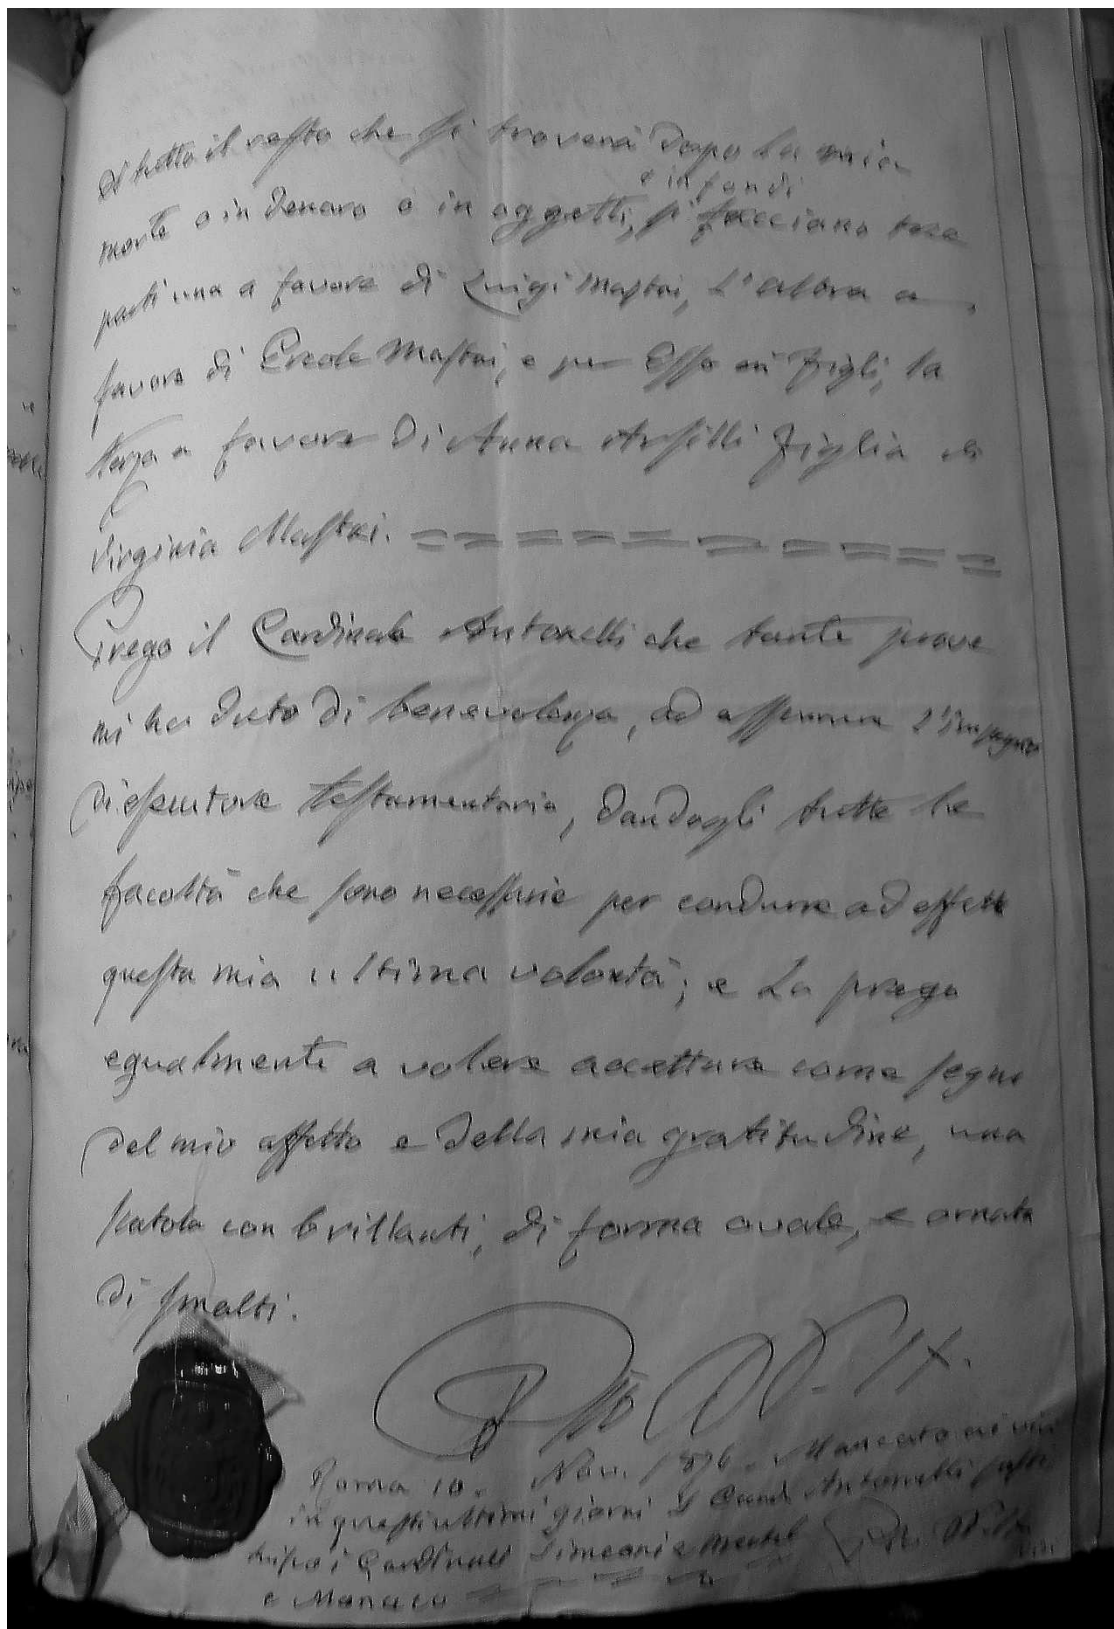 Di tutto il resto che si troverà dopo la mia
e in fondi
morte o in denaro o in oggetti, si facciano tre
parti una a favore di Luigi Mastai, l'altra a
favore di Ercole Mastai, e per Esso ai figli, la
terza a favore di Anna Arsilli figlia di
Virginia Mastai. = = = = = = = = = =
Prego il Cardinale Antonelli che tante prove
mi ha dato di benevolenza, ad assumere l'impegno
di esecutore testamentario, dandogli tutte le
facoltà che sono necessarie per condurre ad effetto
questa mia ultima volontà; e Lo prego
egualmente a volere accettare come segno
del mio affetto e della mia gratitudine, una
scatola con brillanti, di forma ovale, e ornata
di smalti.
Pio PP. IX.
Roma 10. Nov. 1876. Mancato ai vivi
in questi ultimi giorni il Card. Antonelli
i Cardinali Simeoni e Mertel
e Monaco = = = =